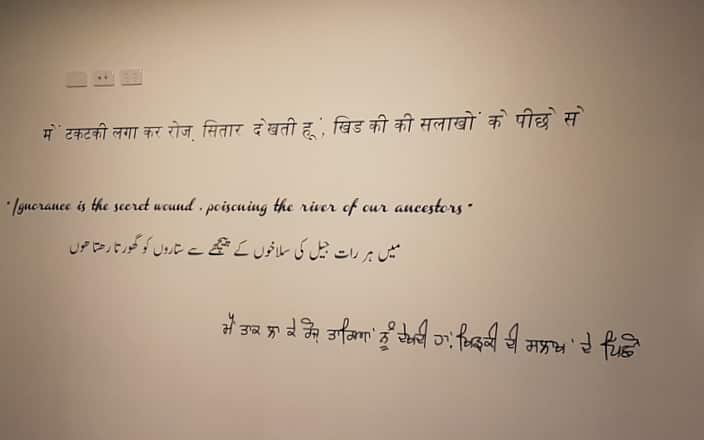 में टकटकी लगा कर रोज़ सितार देखती हूं, खिड की की सलाखों के पीछे से
"Ignorance is the secret wound. poisoning the river of our ancestors"
میں ہر رات جیل کی سلاخوں کے پیچھے سے ستاروں کو گھورتا رھتا ھوں
ਮੈਂ ਤਾਕ ਲਾ ਕੇ ਰੋਜ਼ ਤਾਰਿਆਂ ਨੂੰ ਦੇਖਦੀ ਹਾਂ, ਖਿੜਕੀ ਦੀ ਸਲਾਖਾਂ ਦੇ ਪਿੱਛੇ